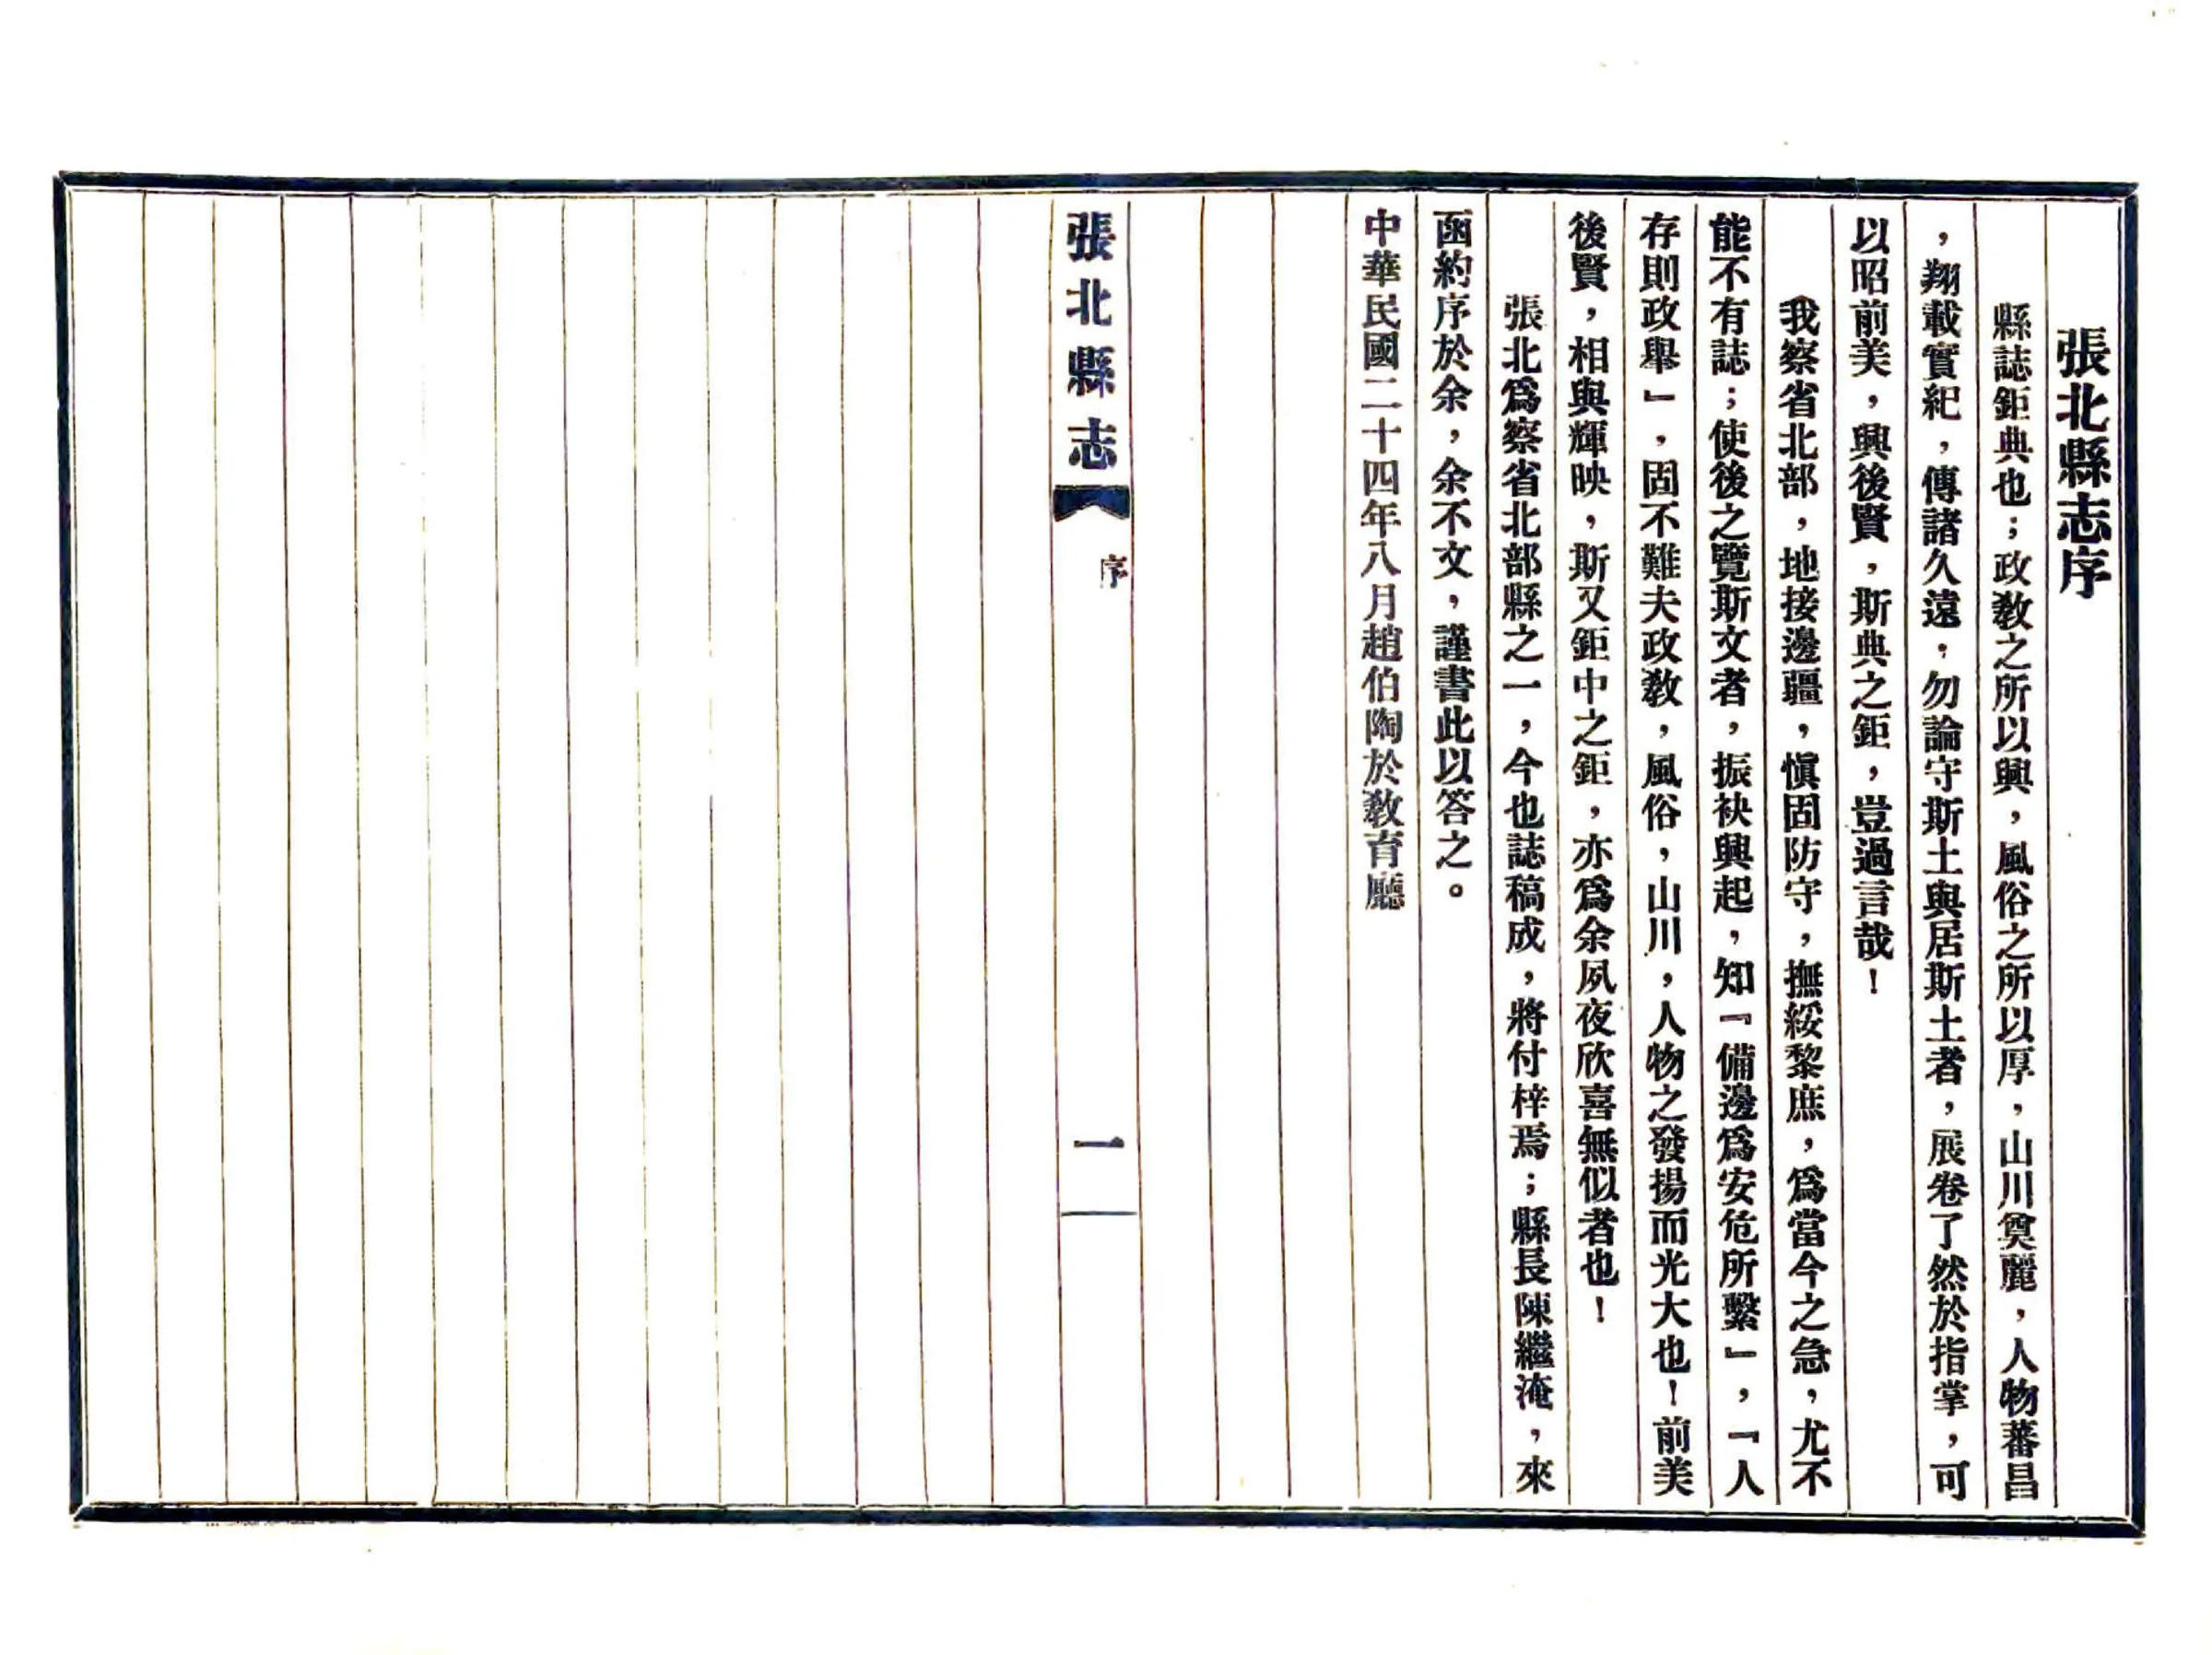 張北縣志序
縣誌鉅典也；政敎之所以興，風俗之所以厚，山川奠麗，人物蕃昌
，翔載實紀，傳諸久遠，勿論守斯土與居斯土者，展卷了然於指掌，可
以昭前美，興後賢，斯典之鉅，豈過言哉！
我察省北部，地接邊疆，愼固防守，撫綏黎庶，爲當今之急，尤不
能不有誌；使後之覽斯文者，振袂興起，知『備邊爲安危所繫』，『人
存則政舉』，固不難夫政敎，風俗，山川，人物之發揚而光大也！前美
後賢，相與輝映，斯又鉅中之鉅，亦爲余夙夜欣喜無似者也！
張北爲察省北部縣之一，今也誌稿成，將付梓焉；縣長陳繼淹，來
函約序於余，余不文，謹書此以答之。
中華民國二十四年八月趙伯陶於敎育廳
張北縣志
序
一